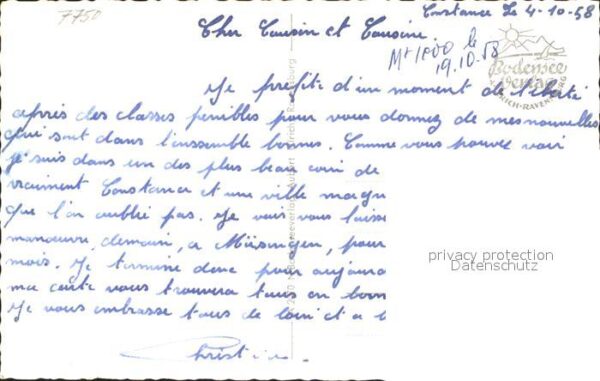 7750
Constance le 4-10-58
Cher Cousin et Cousine
le
19.10.58
Bodensee
Verlag
Je profite d'un moment de liberté
après des classes penibles pour vous donnez de mes nouvelles
qui sont dans l'inssemble bonnes. Comme vous pouvez voir
je suis dans un des plus beau coin de
vraiment Constance et une ville magn
que l'on oublié pas. Je vais vous laisse
manœuvre demain, a Münsingen, pour
mois. Je termine donc pour aujourd
ma carte vous trouvera tous en bonn
Je vous embrasse tous de loin et a b
Christian.
privacy protection
Datenschutz